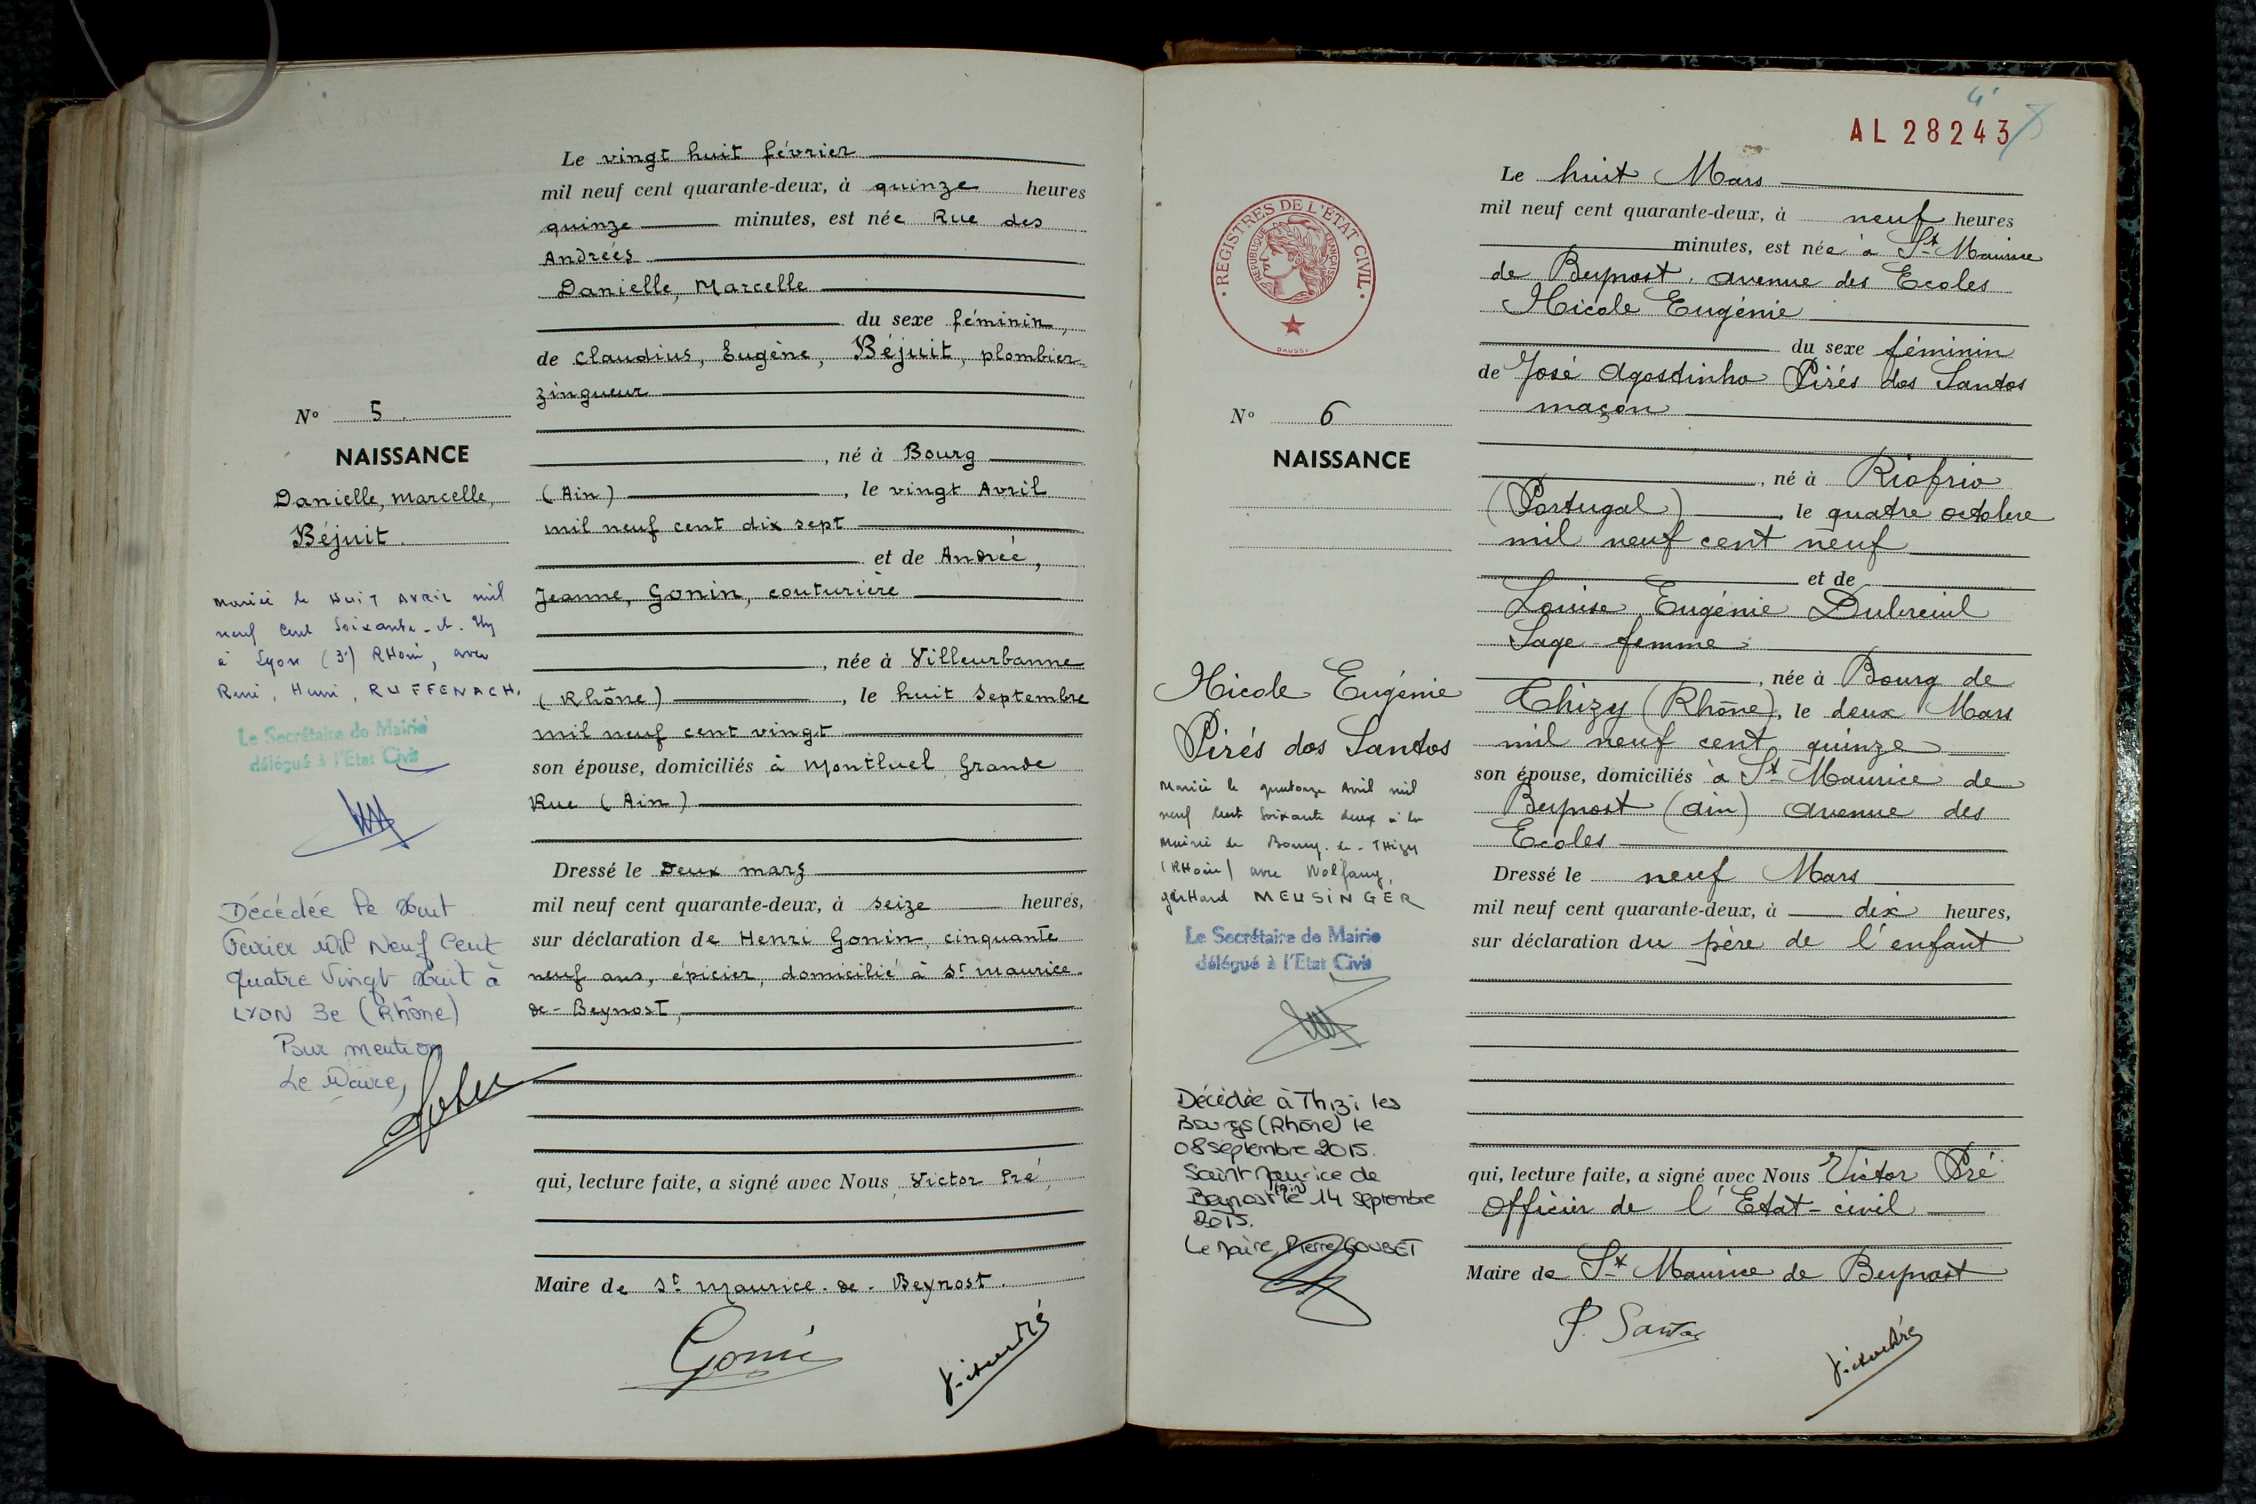 Le vingt huit février
mil neuf cent quarante-deux, à quinze heures
quinze minutes, est née Rue des
Andréés
Danielle, Marcelle
du sexe féminin,
de Claudius, Eugène, Béjuit, plombier-
zingueur
N° 5.
, né à Bourg
NAISSANCE
Danielle, Marcelle,
Béjuit.
(Ain), le vingt Avril
mil neuf cent dix sept
et de Andréé,
Jeanne, Gonin, couturière
, née à Villeurbanne
(Rhône), le huit Septembre
mil neuf cent vingt
son épouse, domiciliés à Montluel Grande
Rue (Ain)
Mariée le HUIT AVRIL mil
neuf cent soixante-et-un
à Lyon (3e) RHône, avec
René, Henri, RUFFENACH.
Le Secrétaire de Mairie
délégué à l'Etat Civil
Dressé le Deux mars
mil neuf cent quarante-deux, à seize heures,
sur déclaration de Henri Gonin, cinquante
neuf ans, épicier, domicilié à St Maurice-
de-Beynost,
Décédée le Huit
Février Mil Neuf Cent
Quatre Vingt Huit à
LYON 3e (Rhône)
Pour mention
Le Maire,
qui, lecture faite, a signé avec Nous, Victor Pré,
Maire de St Maurice-de-Beynost.
Gonin
Victor Pré
AL 28243
Le huit Mars
mil neuf cent quarante-deux, à neuf heures
minutes, est née à St Maurice
de Beynost, avenue des Ecoles
Nicole Eugénie
du sexe féminin
de José Agostinho Pirés dos Santos
maçon
REGISTRES DE L'ÉTAT CIVIL
RÉPUBLIQUE FRANÇAISE
N° 6
NAISSANCE
, né à Riofrio
(Portugal), le quatre octobre
mil neuf cent neuf
et de
Louise Eugénie Dubreuil
Sage-femme
, née à Bourg de
Thizy (Rhône), le deux Mars
mil neuf cent quinze
son épouse, domiciliés à St Maurice de
Beynost (Ain) avenue des
Ecoles
Nicole Eugénie
Pirés dos Santos
Mariée le quatorze Avril mil
neuf cent soixante deux à la
Mairie de Bourg-de-THizy
(RHône) avec Wolfang,
gerHard MEUSINGER
Le Secrétaire de Mairie
délégué à l'Etat Civil
Dressé le neuf Mars
mil neuf cent quarante-deux, à dix heures,
sur déclaration du père de l'enfant
Décédée à Thizi les
Bourgs (Rhône) le
08 septembre 2015.
Saint Maurice de
Beynost (Ain) le 14 septembre
2015.
Le Maire, Pierre GOUBET
qui, lecture faite, a signé avec Nous Victor Pré
Officier de l'Etat-civil
Maire de St Maurice de Beynost
P. Santos
Victor Pré